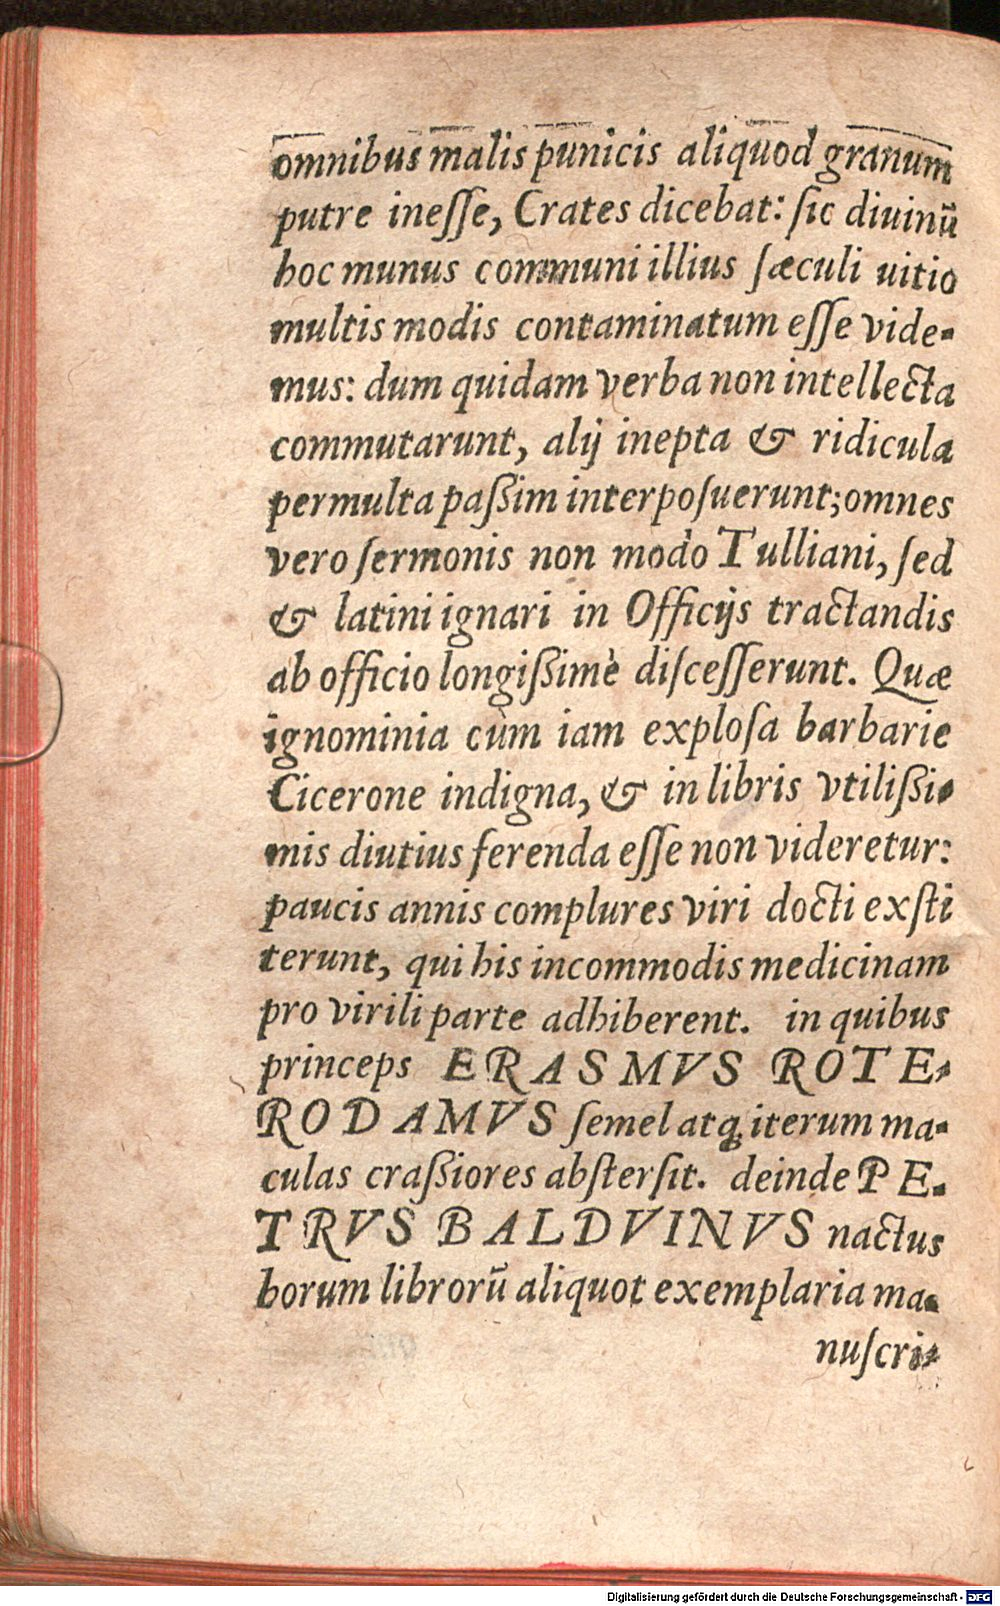 omnibus malis punicis aliquod granum
putre ineſſe, Crates dicebat: ſic diuinū
hoc munus communi illius ſæculi uitio
multis modis contaminatum eſſe vide-
mus: dum quidam verba non intellecta
commutarunt, alij inepta & ridicula
permulta paßim interpoſuerunt; omnes
vero ſermonis non modo Tulliani, ſed
& latini ignari in Officijs tractandis
ab officio longißimè diſceſſerunt. Quæ
ignominia cùm iam exploſa barbarie
Cicerone indigna, & in libris vtilißi-
mis diutius ferenda eſſe non videretur:
paucis annis complures viri docti exſti
terunt, qui his incommodis medicinam
pro virili parte adhiberent. in quibus
princeps ERASMVS ROTE-
RODAMVS ſemel atq; iterum ma-
culas craßiores abſterſit. deinde PE-
TRVS BALDVINVS nactus
horum librorū aliquot exemplaria ma-
nuſcri-
Digitalisierung gefördert durch die Deutsche Forschungsgemeinschaft - DFG